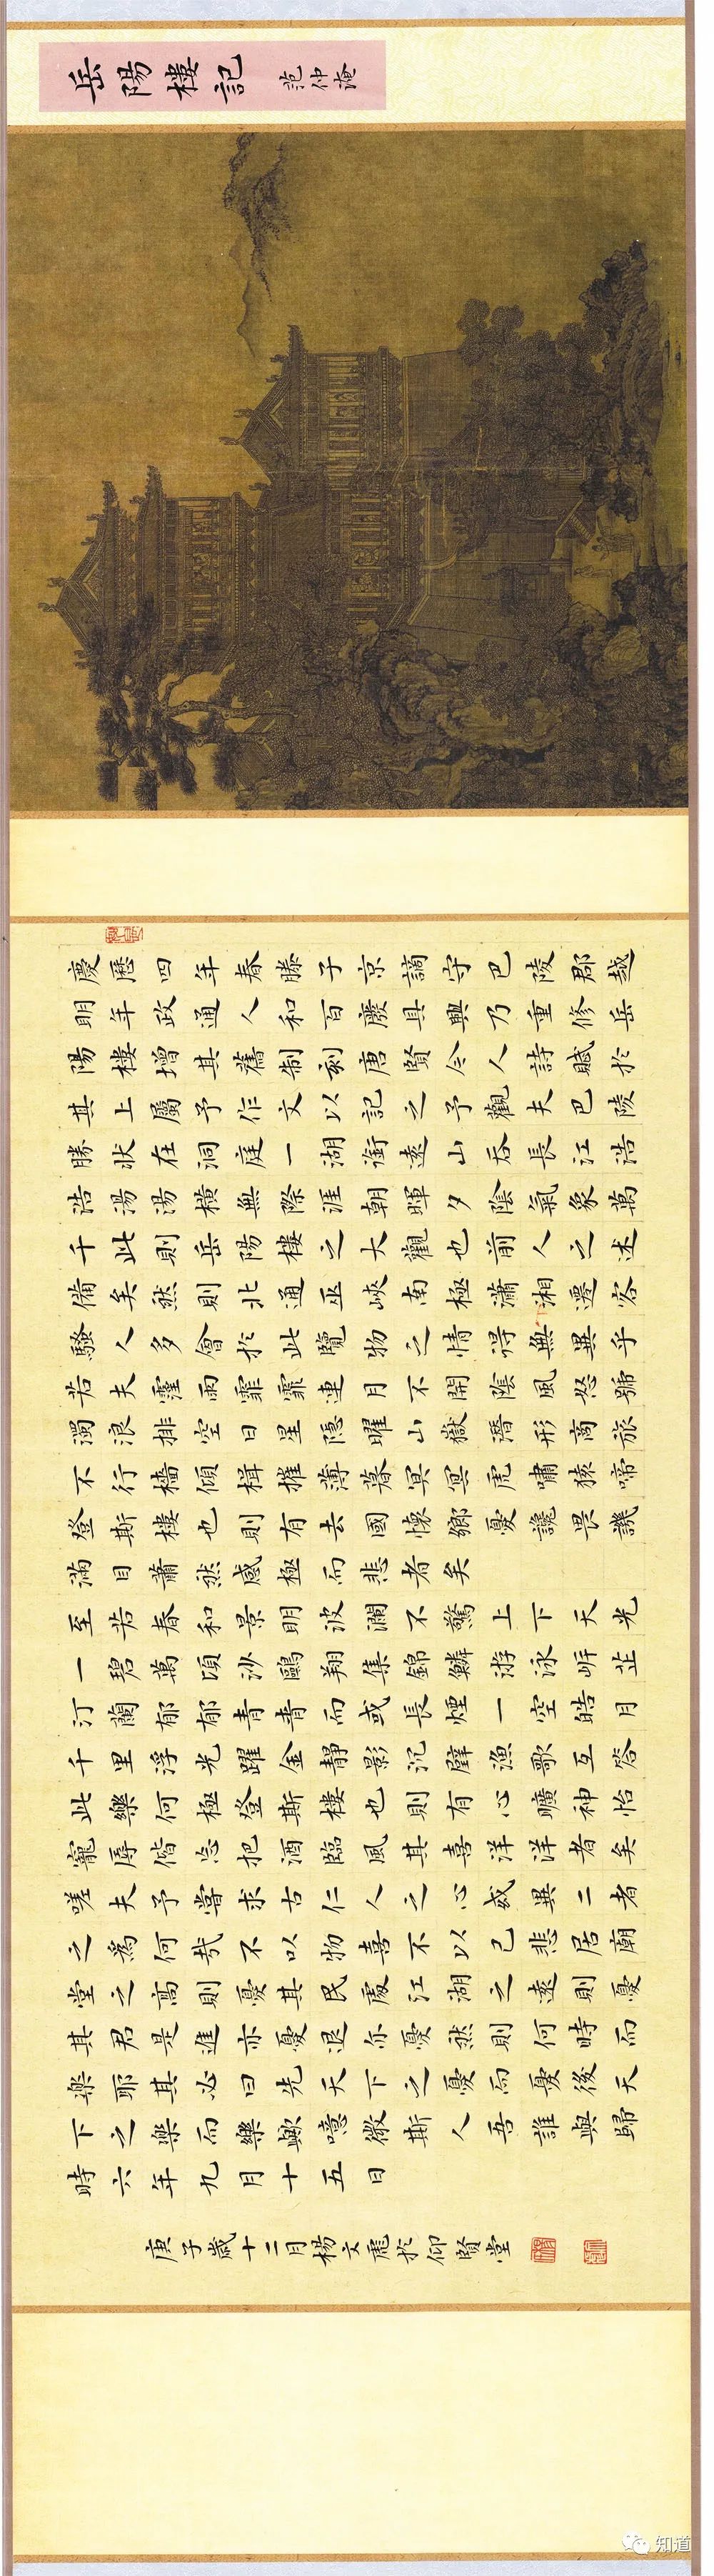 岳陽樓記 范仲淹
慶歷四年春滕子京謫守巴陵郡越
明年政通人和百廢具興乃重修岳
陽樓增其舊制刻唐賢今人詩賦於
其上屬予作文以記之予觀夫巴陵
勝狀在洞庭一湖銜遠山吞長江浩
浩湯湯橫無際涯朝暉夕陰氣象萬
千此則岳陽樓之大觀也前人之述
備矣然則北通巫峽南極瀟湘遷客
騷人多會於此覽物之情得無異乎
若夫霪雨霏霏連月不開陰風怒號
濁浪排空日星隱曜山嶽潛形商旅
不行檣傾楫摧薄暮冥冥虎嘯猿啼
登斯樓也則有去國懷鄉憂讒畏譏
滿目蕭然感極而悲者矣
至若春和景明波瀾不驚上下天光
一碧萬頃沙鷗翔集錦鱗游泳岸芷
汀蘭郁郁青青而或長煙一空皓月
千里浮光躍金靜影沉璧漁歌互答
此樂何極登斯樓也則有心曠神怡
寵辱偕忘把酒臨風其喜洋洋者矣
嗟夫予嘗求古仁人之心或異二者
之為何哉不以物喜不以己悲居廟
堂之高則憂其民處江湖之遠則憂
其君是進亦憂退亦憂然則何時而
樂耶其必曰先天下之憂而憂後天
下之樂而樂歟噫微斯人吾誰與歸
時六年九月十五日
庚子歲十二月楊文彪於仰賢堂
知道